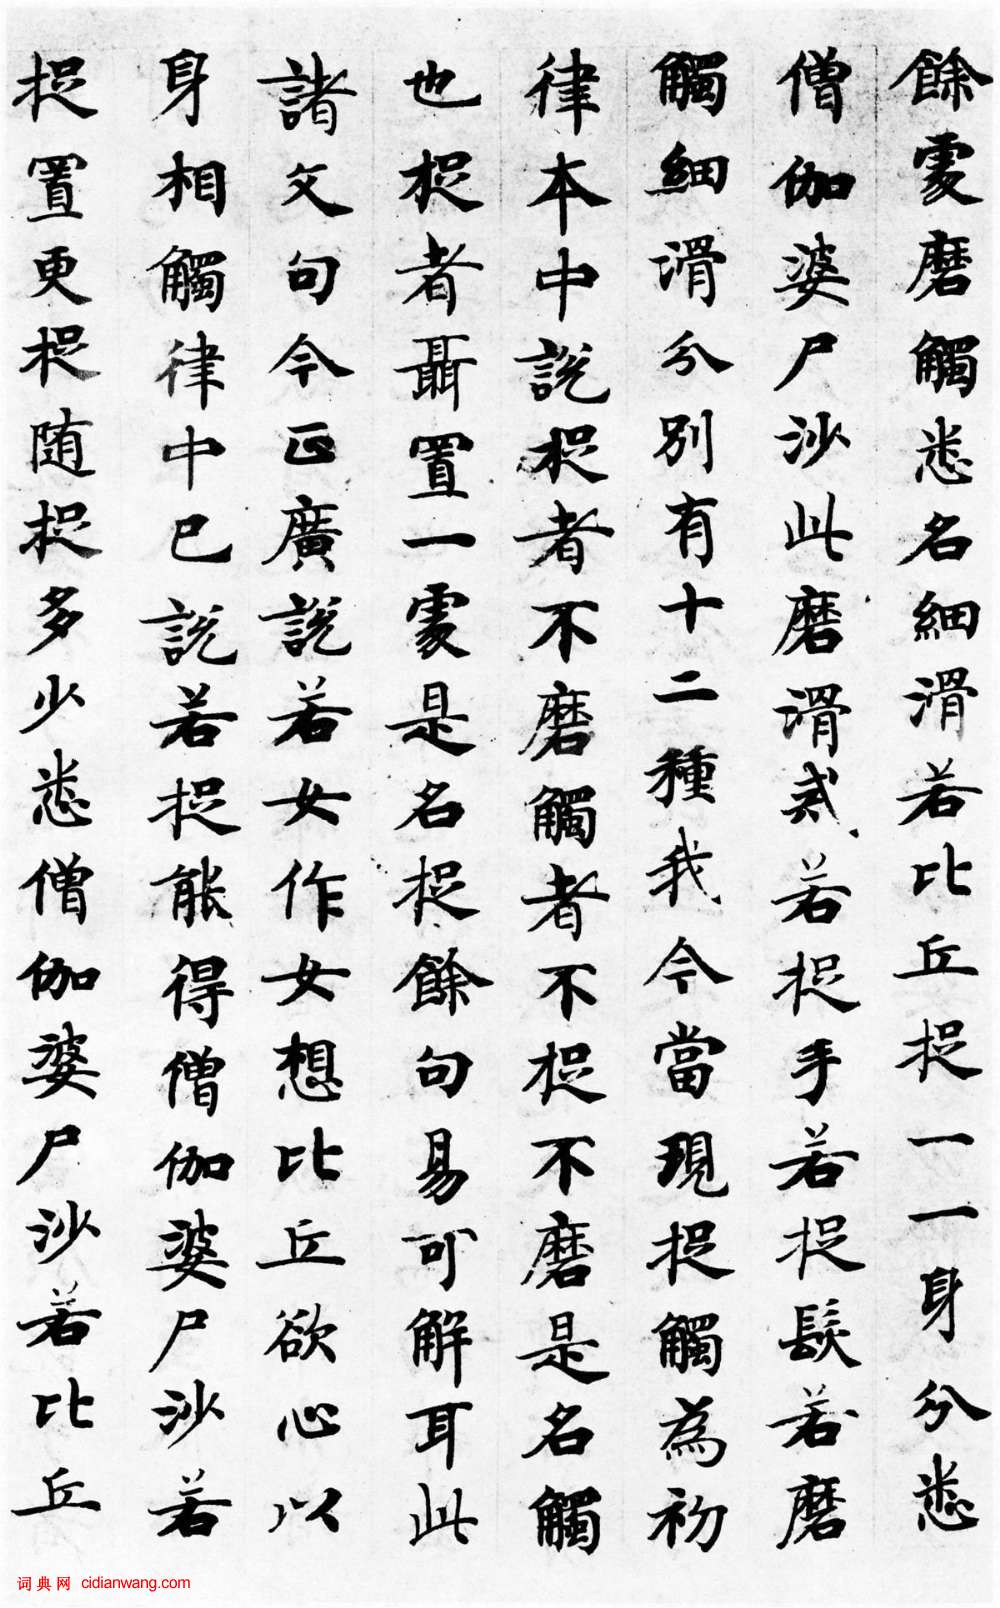 餘處磨觸悉名細滑若比丘捉一一身分悉
僧伽婆尸沙此磨滑貳若捉手若捉髮若磨
觸細滑分別有十二種我今當現捉觸為初
律本中說捉者不磨觸者不捉不磨是名觸
也捉者聶置一處是名捉餘句易可解耳此
諸文句今正廣說若女作女想比丘欲心以
身相觸律中已說若捉能得僧伽婆尸沙若
捉置更捉随捉多少悉僧伽婆尸沙若比丘
词典网 cidianwang.com